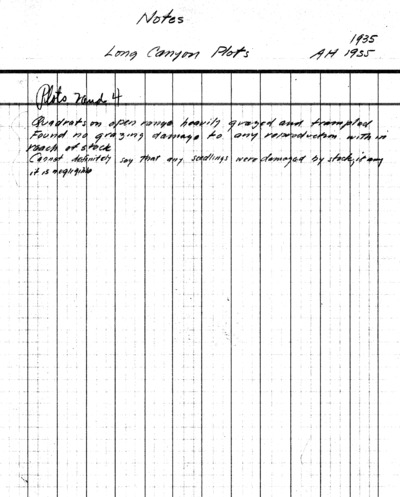 Notes
1935
Long Canyon Plots AH 1935
Plots 2 and 4
Quadrats on open range heavily grazed and trampled
Found no grazing damage to any reproduction within
reach of stock
Cannot definitely say that any seedlings were damaged by stock; if any
it is negligible